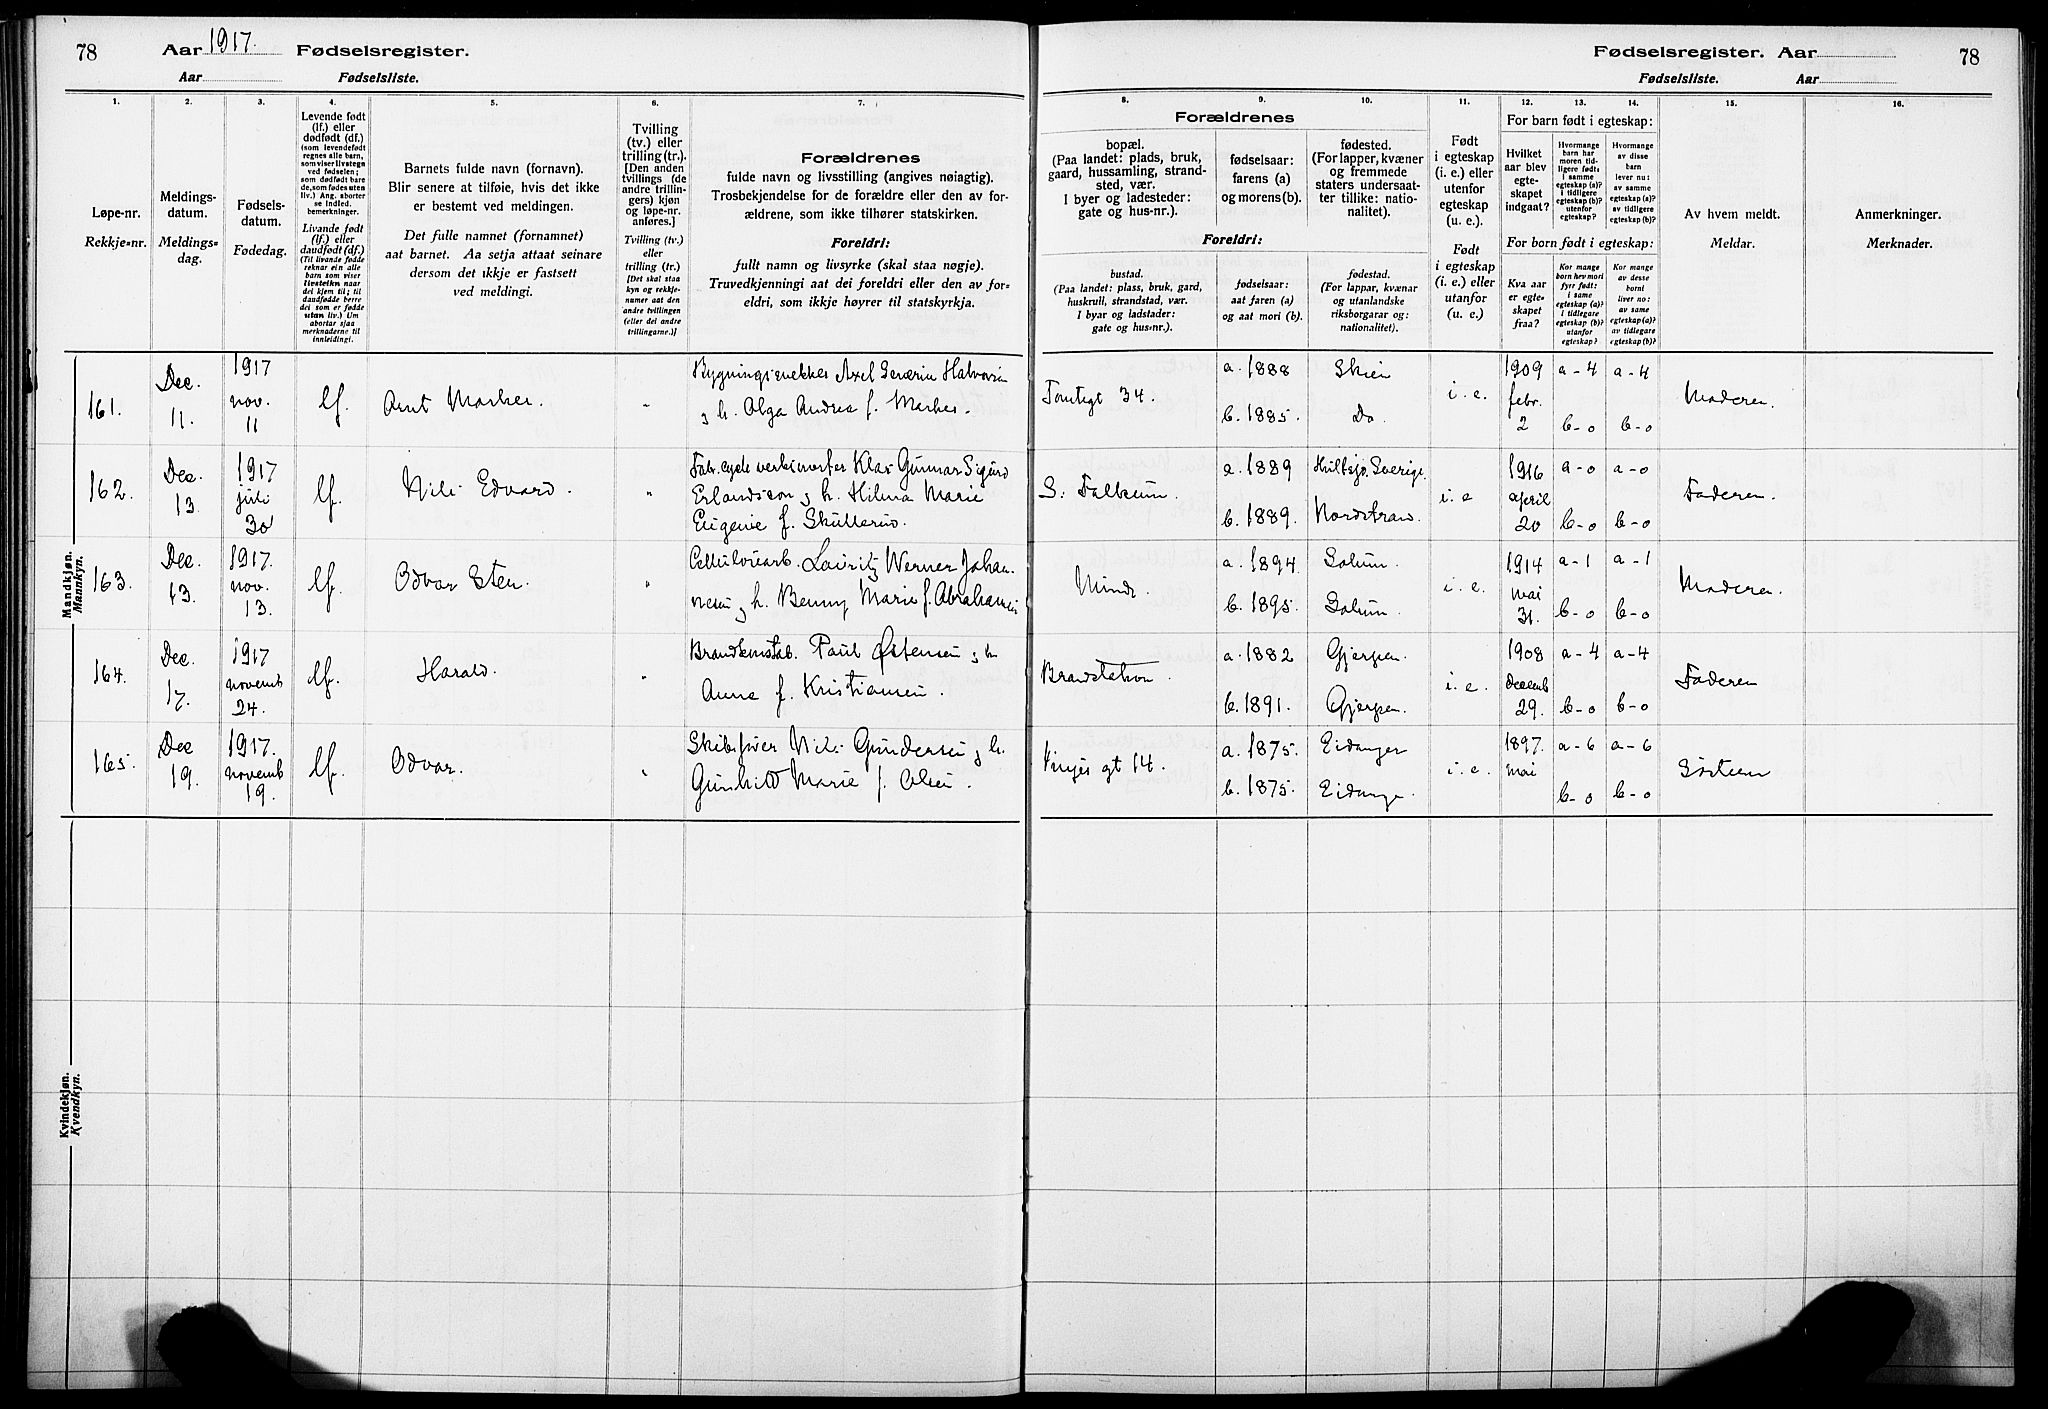 78 Aar 1917. Fødselsregister.
Aar Fødselsliste.
Fødselsregister. Aar 78
Fødselsliste. Aar
1. 2. 3. 4. 5. 6. 7.
Løpe-nr.
Rekkje=nr.
Meldings-
datum.
Meldings=
dag.
Fødsels-
datum.
Fødedag.
Levende født
(lf.) eller
dødfødt (df.)
(som levendefødt
regnes alle barn,
som viser livstegn
ved fødselen;
som dødfødt bare
de, som fødes uten
liv.) Ang. aborter
se indled.
bemerkninger.
Livande født
(lf.) eller
daudfødt (df.)
(Til livande fødde
reknar ein alle
barn som viser
livsteikn naar
dei kjem til; til
daudfødde berre
dei som er fødde
utan liv.) Um
abortar sjaa
merknaderne til
innleidingi.
Barnets fulde navn (fornavn).
Blir senere at tilføie, hvis det ikke
er bestemt ved meldingen.
Det fulle namnet (fornamnet)
aat barnet. Aa setja attaat seinare
dersom det ikkje er fastsett
ved meldingi.
Tvilling
(tv.) eller
trilling (tr.).
[Den anden
tvillings (de
andre trillin-
gers) kjøn
og løpe-nr.
anføres.]
Tvilling (tv.)
eller
trilling (tr.)
[Det skal staa
kyn og rekkje-
numer aat den
andre tvillingen
(eller dei andre
trillingarne.)]
Forældrenes
fulde navn og livsstilling (angives nøiagtig).
Trosbekjendelse for de forældre eller den av for-
ældrene, som ikke tilhører statskirken.
Foreldri:
fullt namn og livsyrke (skal staa nøgje).
Truvedkjenningi aat dei foreldri eller den av for=
eldri, som ikkje høyrer til statskyrkja.
8. 9. 10. 11. 12. 13. 14. 15. 16.
Forældrenes
bopæl.
(Paa landet: plads, bruk,
gaard, hussamling, strand-
sted, vær.
I byer og ladesteder:
gate og hus-nr.).
fødselsaar:
farens (a)
og morens (b).
fødested.
(For lapper, kvæner
og fremmede
staters undersaat-
ter tillike: natio-
nalitet).
Foreldri:
bustad.
(Paa landet: plass, bruk, gard,
huskrull, strandstad, vær.
I byar og ladstader:
gate og hus=nr.).
fødselsaar:
aat faren (a)
og aat mori (b).
fødestad.
(For lappar, kvænar
og utanlandske
riksborgarar og:
nationalitet).
Født
i egteskap
(i. e.) eller
utenfor
egteskap
(u. e.).
Født
i egteskap
(i. e.) eller
utanfor
(u. e.).
For barn født i egteskap:
Hvilket
aar blev
egte-
skapet
indgaat?
Hvormange
barn har
moren tid-
ligere født:
i samme
egteskap (a)?
i tidligere
egteskap (b)?
utenfor
egteskap?
Hvormange
av disse
barn
lever nu:
av samme
egteskap (a)?
av tidligere
egteskap (b)?
For born født i egteskap:
Kva aar
er egte=
skapet
fraa?
Kor mange
born hev mori
fyrr født:
i same
egteskap (a)?
i tidlegare
egteskap (b)?
utanfor
egteskap?
Kor mange
av desse
borni
liver no:
av same
egteskap (a)?
av tidlegare
egteskap (b)?
Av hvem meldt.
Meldar.
Anmerkninger.
Merknader.
Mandkjøn.
Mannkyn.
161. Dec. 11. 1917 nov. 11 lf. Arnt Marker. " Bygningssnekker Axel Severin Halvorsen
g h. Olga Andrea f. Marker.
162. Dec. 13. 1917 juli 30 lf. Nils Edvard. " Klas Gunnar Sigurd
Erlandsson g h. Hilma Marie
Eugenie f. Skullerud.
163. Dec. 13. 1917. nov. 13. lf. Odvar Sten. " Cellulosearb. Lauritz Werner Johan-
nesen g h. Benny Marie f. Abrahamsen
164. Dec. 17. 1917 novemb 24. lf. Harald. " Brandkonstab. Paul Østensen g h
Anna f. Kristiansen.
165. Dec 19. 1917. novemb 19. lf. Odvar. " Skibsfører Nils Gundersen g h.
Gunhild Marie f. Olsen.
34. a. 1888 Skien i. e. 1909 febr. 2 a - 4 a - 4 Moderen.
b. 1885. Do. b - o b - o
S. Falkum. a. 1889 Sverige. i. e 1916 april 20 a - o a - o Faderen.
b. 1889. Nordstrand. b - o b - o
Minde. a. 1894. Solum. i. e. 1914 mai 31. a - 1 a - 1 Moderen.
b. 1895. Solum. b - o b - o
Brandstation. a. 1882 Gjerpen. i. e. 1908 decemb 29. a - 4 a - 4 Faderen
b. 1891. Gjerpen. b - o b - o
Vinjes gt 14. a. 1875. Eidanger i. e. 1897. mai a - 6 a - 6
b. 1875. Eidanger. b - o b - o
Kvindekjøn.
Kvendkyn.